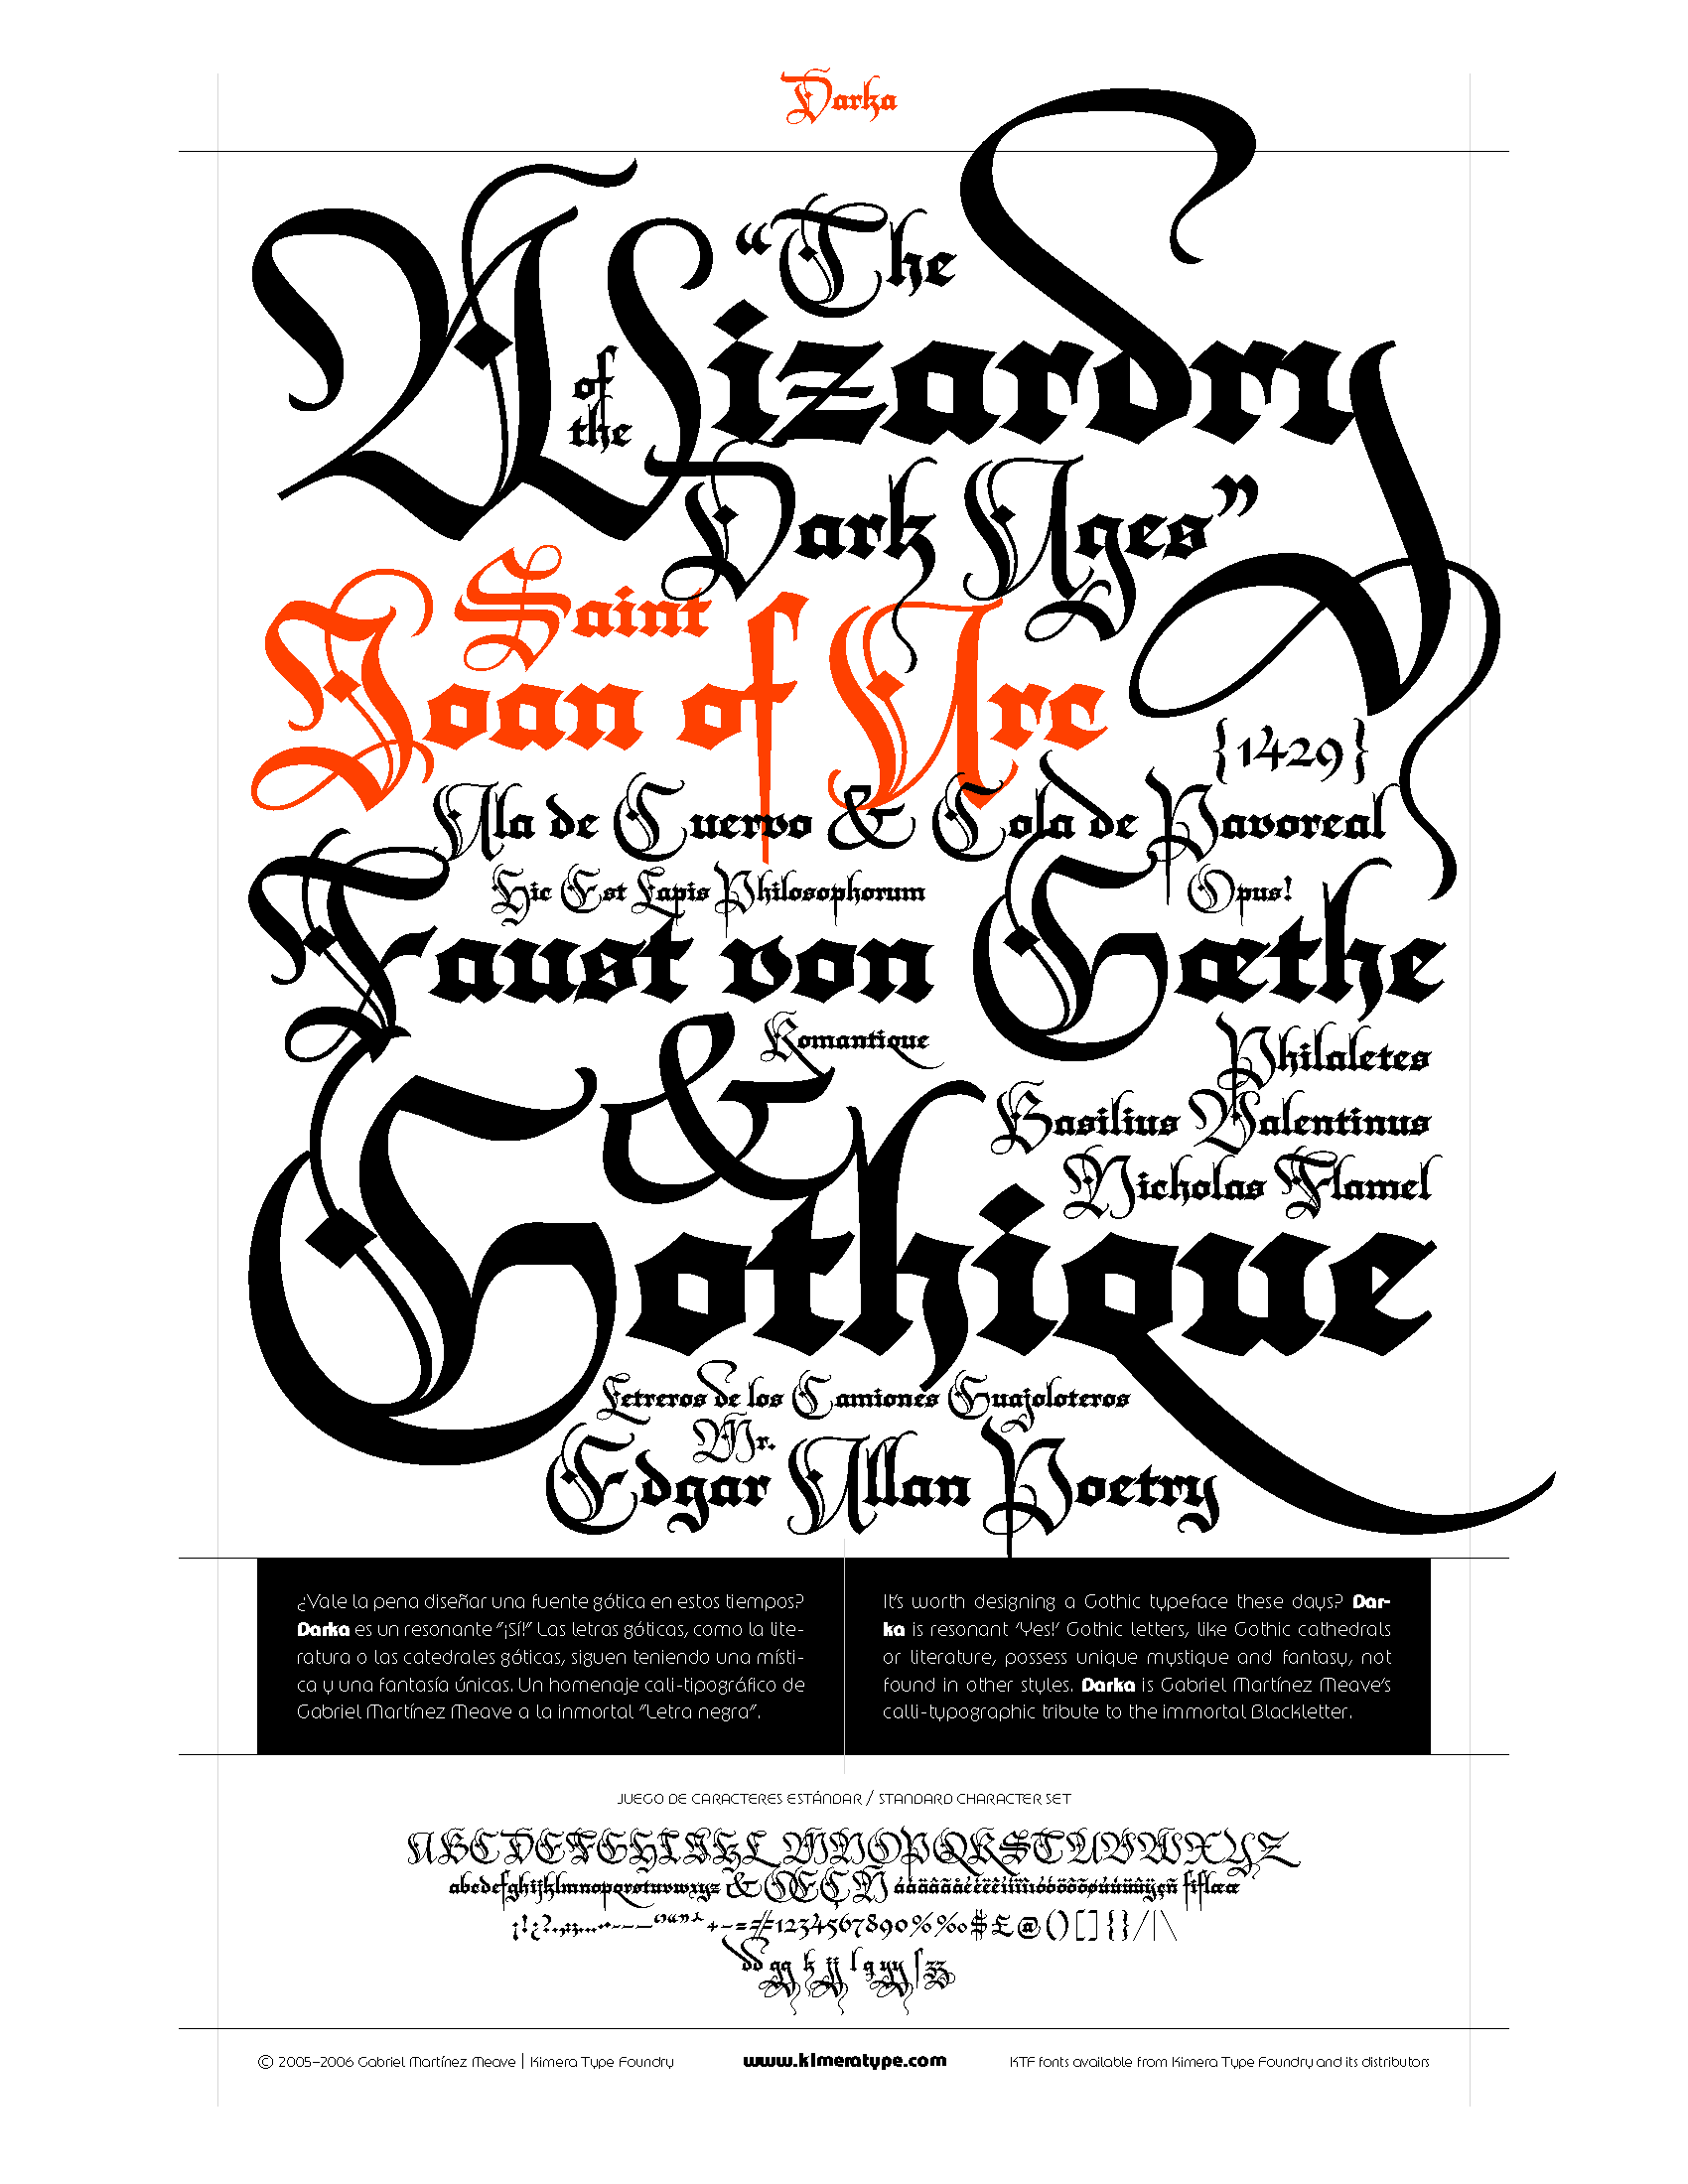 Darka
“The
Wizardry
of
the
Dark Ages”
Saint
Joan of Arc
{1429}
Ala de Cuervo & Cola de Pavoreal
Hic Est Lapis Philosophorum
Opus!
Faust von Gœthe
Romantique
&
Philaletes
Basilius Valentinus
Nicholas Flamel
Gothique
Letreros de los Camiones Guajoloteros
Mr.
Edgar Allan Poetry
¿Vale la pena diseñar una fuente gótica en estos tiempos?
Darka es un resonante “¡Sí!” Las letras góticas, como la lite-
ratura o las catedrales góticas, siguen teniendo una místi-
ca y una fantasía únicas. Un homenaje cali-tipográfico de
Gabriel Martínez Meave a la inmortal “Letra negra”.
It’s worth designing a Gothic typeface these days? Dar-
ka is resonant ‘Yes!’ Gothic letters, like Gothic cathedrals
or literature, possess unique mystique and fantasy, not
found in other styles. Darka is Gabriel Martínez Meave’s
calli-typographic tribute to the immortal Blackletter.
JUEGO DE CARACTERES ESTÁNDAR / STANDARD CHARACTER SET
ABCDEFGHIJKL MNOPQRSTUVWXYZ
abcdefghijklmnopqrstuvwxyz & Œ Ç Ñ áàäâãåéèëêíìïîóòöôõøúùüûÿçñ fiflæœ
+−=≠#1234567890%‰$£@()[]{}/|\
© 2005–2006 Gabriel Martínez Meave | Kimera Type Foundry
www.kimeratype.com
KTF fonts available from Kimera Type Foundry and its distributors